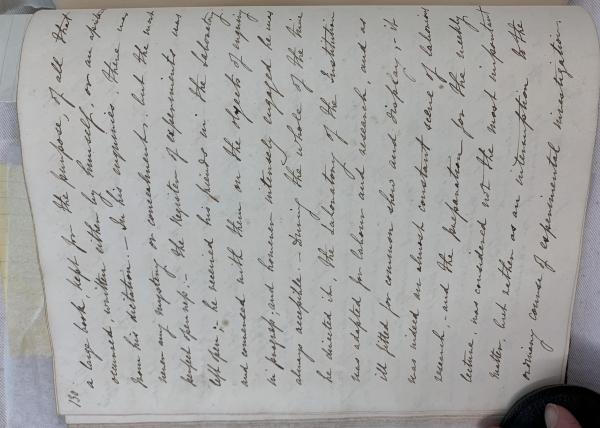 130
a large book, kept for the purpose, of all that
occurred written either by himself, or an
from his dictation. – In his enquiries there was
never any mystery or concealment, but the most
perfect openness. – The register of experiments was
left open; he received his friends in the laboratory
and conversed with them on the objects of inquiry
in progress; and however intensely engaged he was
always accessible. – During the whole of the time
he directed it, the laboratory of the Institution
was adapted for labour and research, and as
ill fitted for common show and display; it
was indeed an almost constant scene of laborious
research, and the preparation for the weekly
lecture, was considered not the most important
matter, but rather as an interruption to the
ordinary course of experimental investigation.